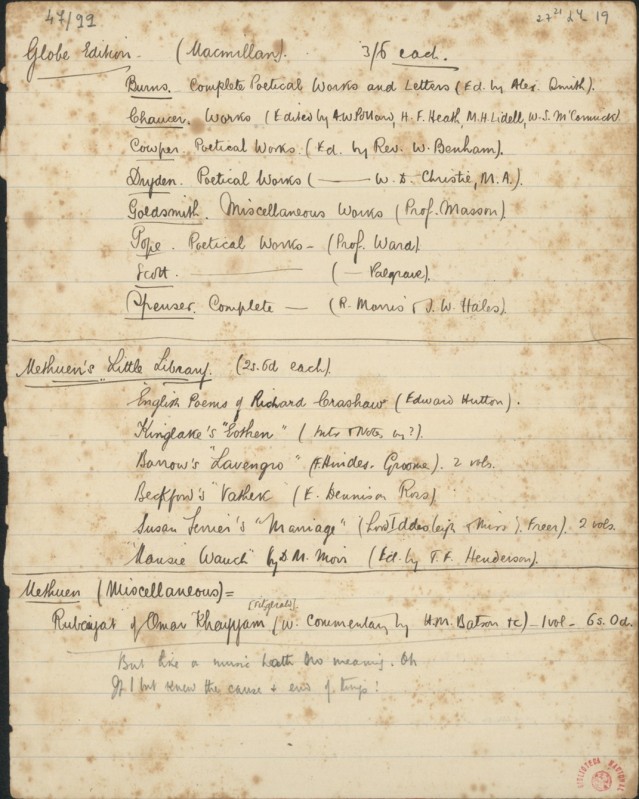 47/99
19
Globe Edition. (Macmillan). 3/6 each.
Burns. Complete Poetical Works and Letters (Ed. by Alex. Smith).
Chaucer. Works (Edited by A.W. Pollard, H.F. Heath, M.H. Lidell, W.S. McCormick)
Cowper. Poetical Works. (Ed. by Rev. W. Benham).
Dryden. Poetical Works (—— W.D. Christie, M.A.).
Goldsmith. Miscellaneous Works (Prof. Masson).
Pope. Poetical Works – (Prof. Ward).
Scott. —————— (— Palgrave).
Spenser. Complete — (R. Morris & J.W. Hales).
Methuen's Little Library. (2s. 6d each).
English Poems of Richard Crashaw (Edward Hutton).
Kinglake's "Eothen" (Intr & Notes by?).
Borrow's "Lavengro" (F. Hindes Groome). 2 vols.
Beckford's "Vathek" (E. Dennison Ross).
Susan Ferrier's "Marriage" (Lord Iddesleigh & Miss Freer). 2 vols.
"Mansie Wauch" by D.M. Moir (Ed. by T.F. Henderson).
Methuen (Miscellaneous) =
[Fitzgerald].
Rubáiyát of Omar Khayyam (w. Commentary by H.M. Batson &c) – 1 vol – 6s. 0d.
But like a music hath no meaning. Oh
If I but knew the cause & end of things!
BIBLIOTECA NACIONAL